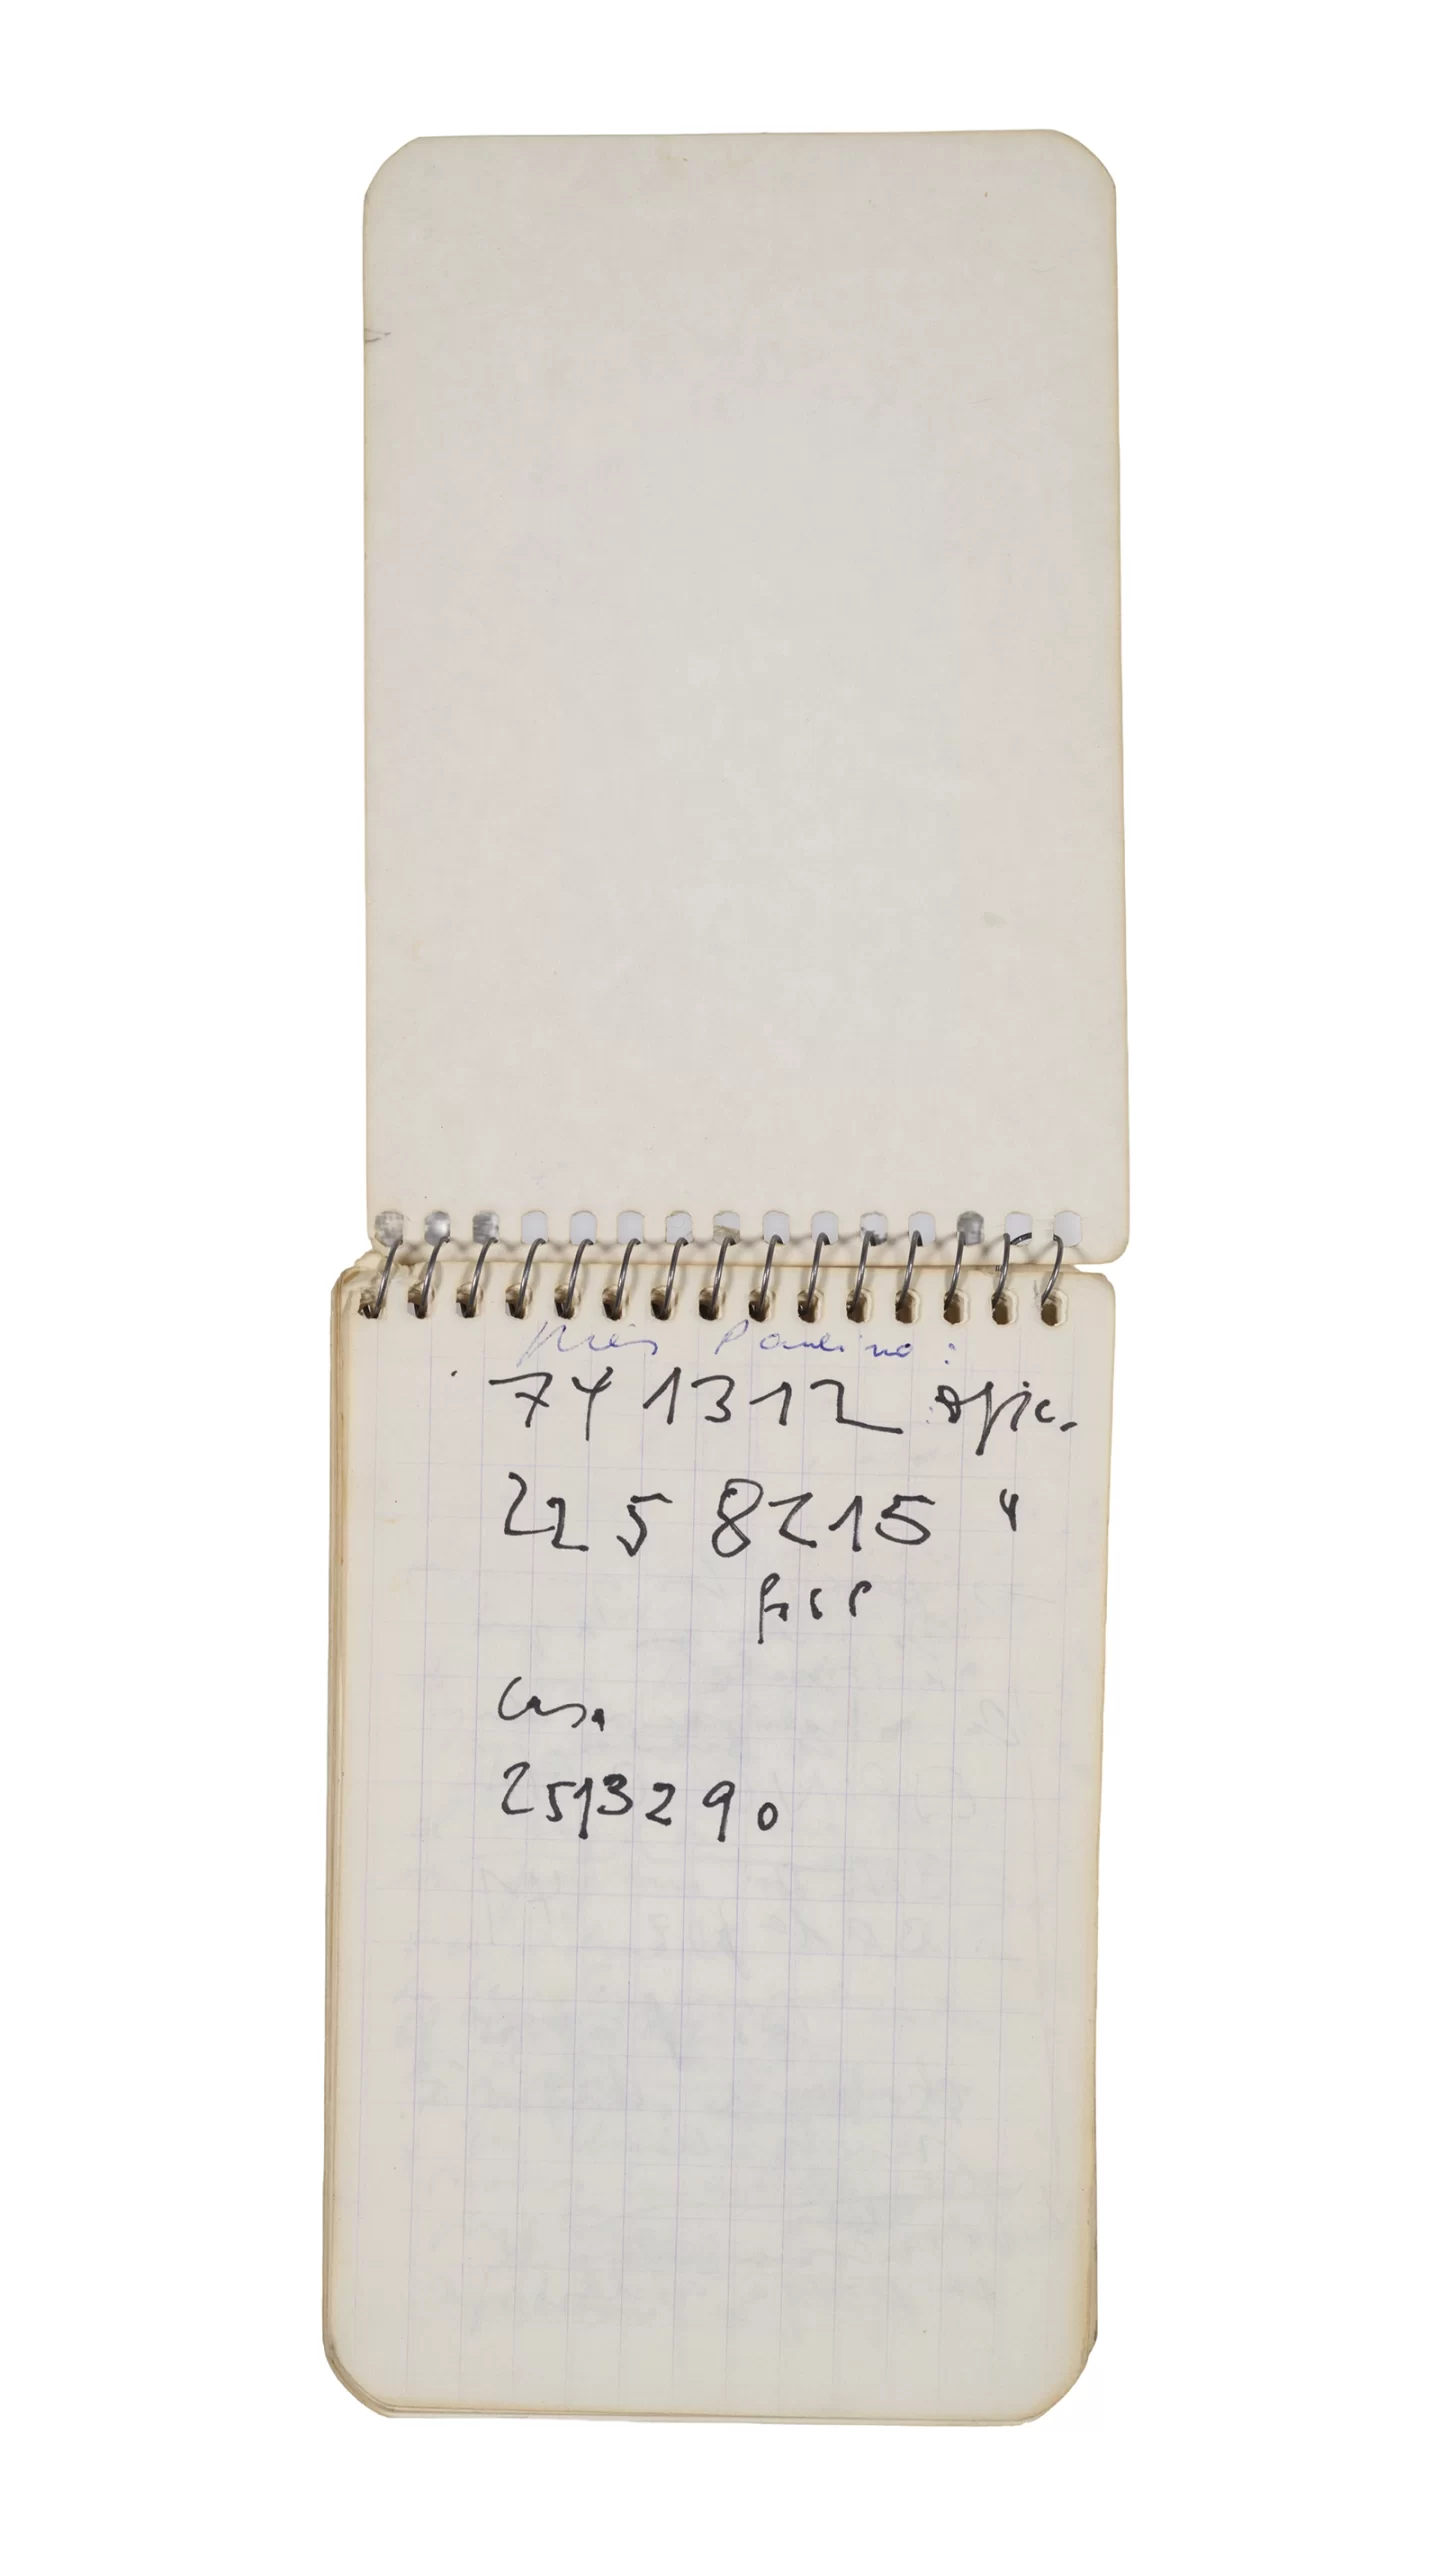 Paulino:
741312 ofic.
225 8215 "
Casa
2513290